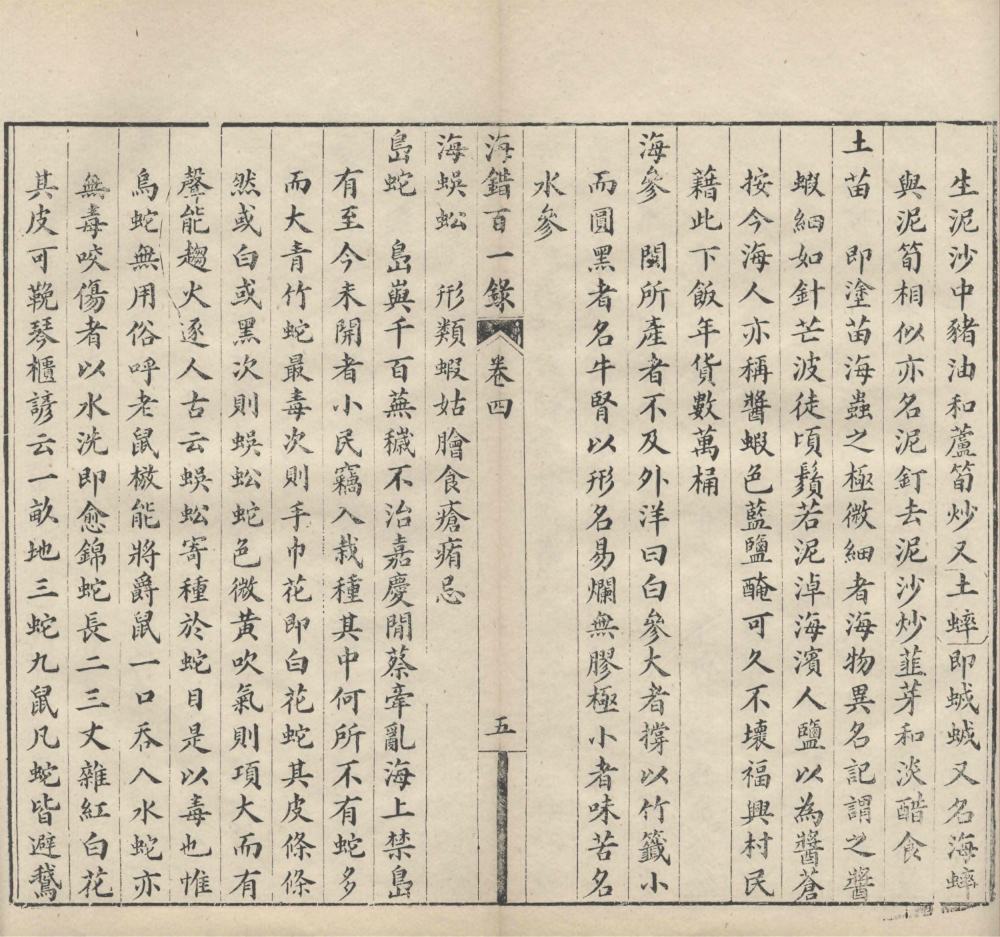 生泥沙中豬油和蘆筍炒又土蟀即蜮蜮又名海蟀
與泥筍相似亦名泥釘去泥沙炒韮芽和淡醋食
土苗　即塗苗海蟲之極微細者海物異名記謂之醬
蝦細如針芒波徒頃鬚若泥淖海濱人鹽以為醬蒼
按今海人亦稱醬蝦色藍鹽醃可久不壞福興村民
藉此下飯年貨數萬桶
海參　閩所產者不及外洋曰白參大者撐以竹籤小
而圓黑者名牛腎以形名易爛無膠極小者味苦名
水參
海錯百一錄　卷四　五
海蜈蚣　形類蝦姑膾食瘡痏忌
島蛇　島嶼千百蕪穢不治嘉慶閒蔡牽亂海上禁島
有至今未開者小民竊入栽種其中何所不有蛇多
而大青竹蛇最毒次則手巾花即白花蛇其皮條條
然或白或黑次則蜈蚣蛇色微黃吹氣則項大而有
聲能趨火逐人古云蜈蚣寄種於蛇目是以毒也惟
烏蛇無用俗呼老鼠檄能將爵鼠一口吞入水蛇亦
無毒咬傷者以水洗即愈錦蛇長二三丈雜紅白花
其皮可鞔琴櫃諺云一畝地三蛇九鼠凡蛇皆避鵞